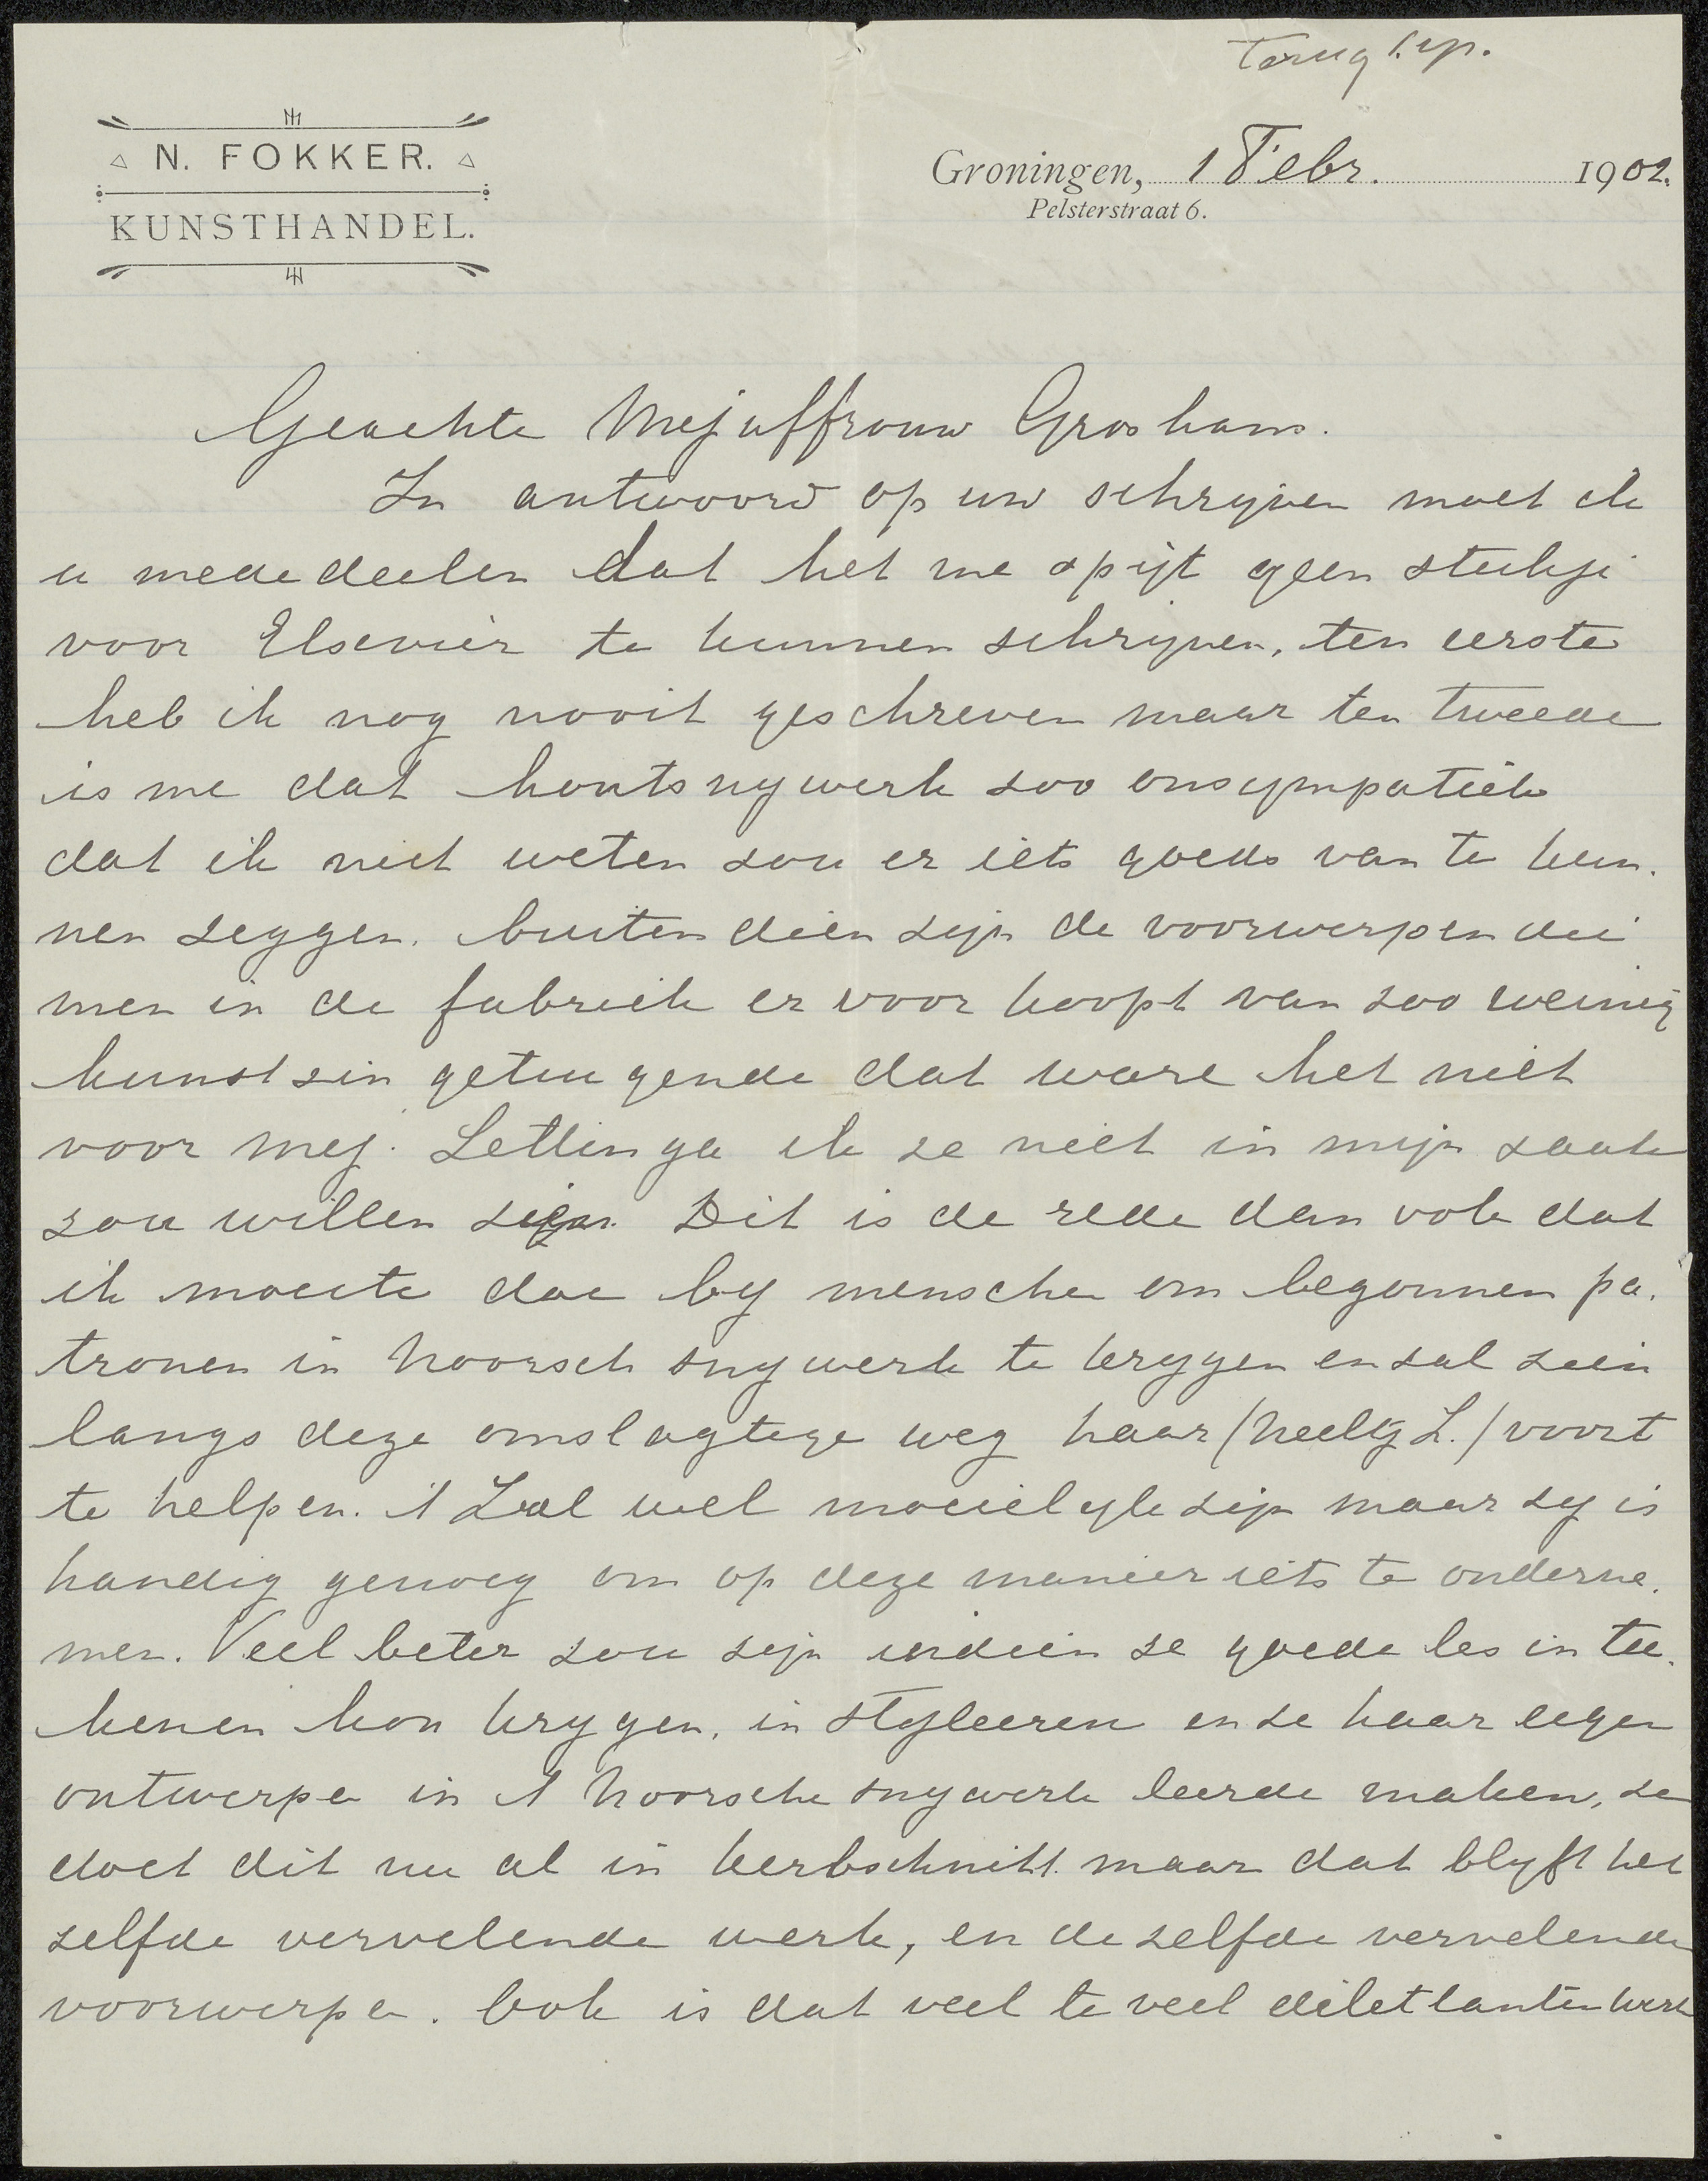 terug s.v.p.
N. FOKKER.
KUNSTHANDEL.
Groningen, 1 Febr. 1902.
Pelsterstraat 6.
Geachte Mejuffrouw Groshans.
In antwoord op uw schryven moet ik
u mededeelen dat het me spijt geen stukje
voor Elsevier te kunnen schryven, ten eerste
heb ik nog nooit geschreven maar ten tweede
is me dat houtsnywerk soo onsympatiek
dat ik niet weten sou er iets goeds van te kun.
nen seggen. buiten dien sijn de voorwerpen die
men in de fabriek er voor koopt van soo weinig
kunstsin getuigende dat ware het niet
voor mej. Settinga ik se niet in mijn saak
sou willen sien. Dit is de rede dan ook dat
ik moeite doe by mensche om begonnen pa.
tronen in Noorsch snywerk te krygen en sal sien
langs deze omslagtige weg haar (Neeltj S.) voort
te helpen. 't Sal wel moeielyk sijn maar sy is
handig genoeg om op deze manier iets te onderne.
men. Veel beter sou sijn indien se goede les in tee.
kenen kon krygen, in styleeren en se haar eigen
ontwerpe in 't Noorsche snywerk leerde maken, se
doet dit nu al in kerbschnitt. maar dat blyft het
selfde vervelende werk, en de selfde vervelende
voorwerpe. Ook is dat veel te veel dilettanten werk